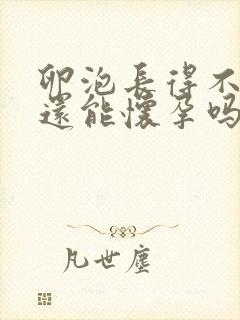 卵泡長得不
還能懷孕吗
凡世塵